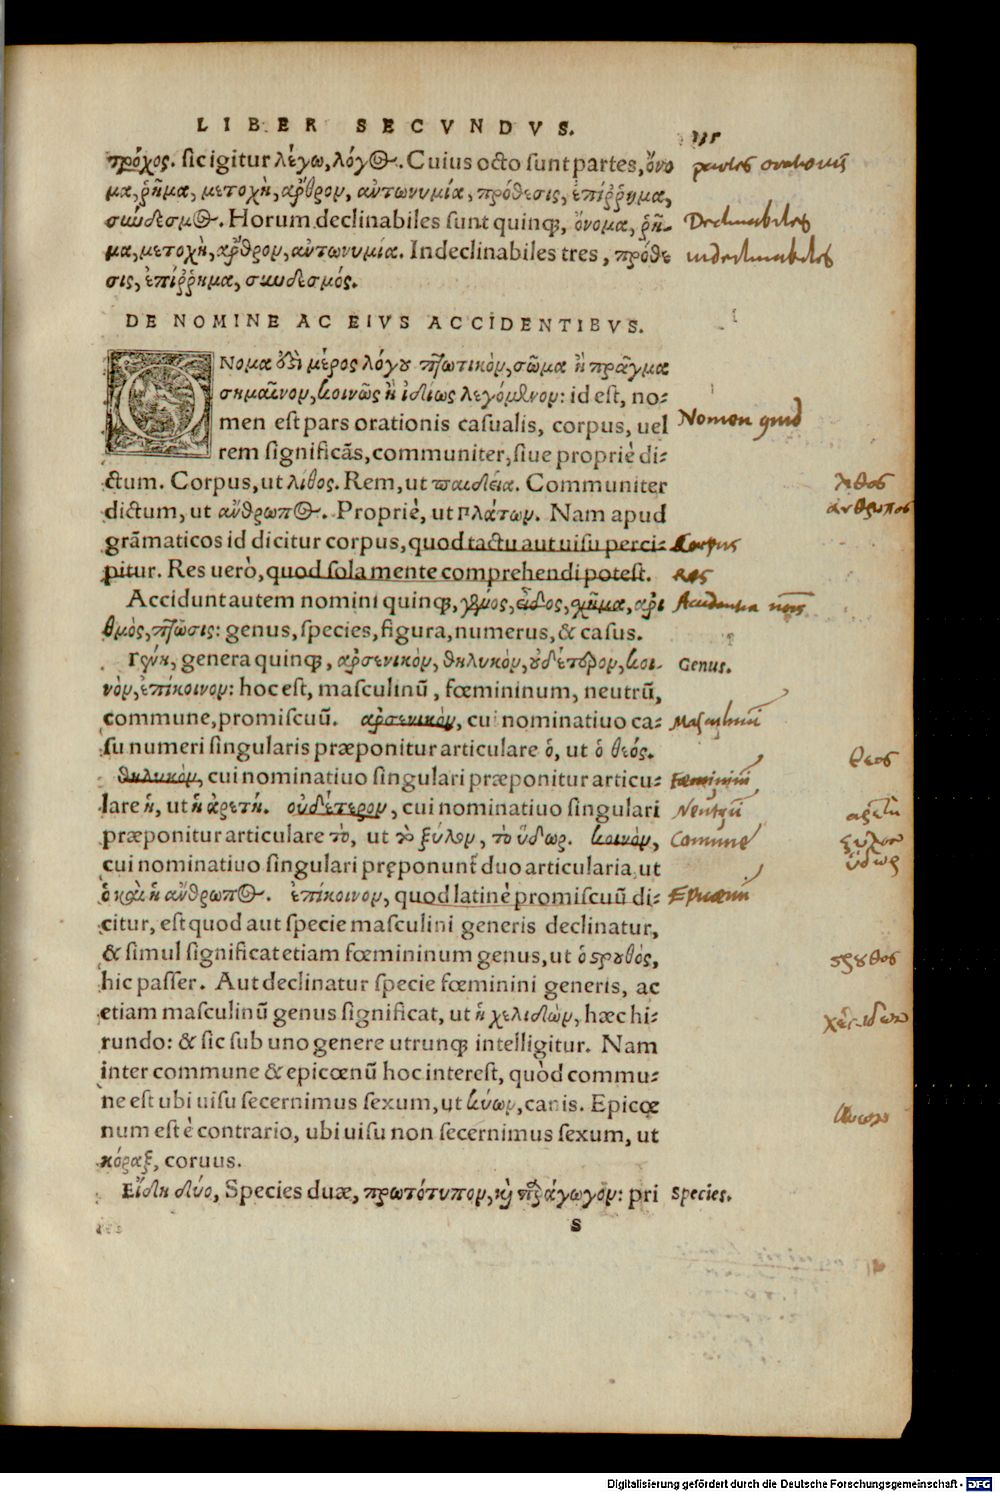 LIBER SECVNDVS.
τρόχος. sic igitur λέγω, λόγος. Cuius octo sunt partes, ὄνο
partes orationis
μα, ῥῆμα, μετοχὴ, ἄρθρον, ἀντωνυμία, πρόθεσις, ἐπίῤῥημα,
σύνδεσμος. Horum declinabiles sunt quinq;, ὄνομα, ῥῆ-
Declinabiles
μα, μετοχὴ, ἄρθρον, ἀντωνυμία. Indeclinabiles tres, πρόθε
indeclinabiles
σις, ἐπίῤῥημα, σύνδεσμός.
DE NOMINE AC EIVS ACCIDENTIBVS.
ΟΝομα ὅδι μέρος λόγου πτωτικὸν, σῶμα ἢ πρᾶγμα
σημαῖνον, κοινῶς ἢ ἰδίως λεγόμενον: id est, no-
men est pars orationis casualis, corpus, uel
Nomen quid
rem significãs, communiter, siue propriè di-
ctum. Corpus, ut λίθος. Rem, ut παιδέια. Communiter
λιθος
dictum, ut ἄνθρωπος. Propriè, ut Πλάτων. Nam apud
άνθρωπος
grãmaticos id dicitur corpus, quod tactu aut uisu perci-
Corpus
pitur. Res uerò, quod sola mente comprehendi potest.
Res
Accidunt autem nomini quinq;, γένος, εἶδος, σχῆμα, ἀρι
Accidentia
θμὸς, πτῶσις: genus, species, figura, numerus, & casus.
Γένη, genera quinq;, ἀρσενικὸν, θηλυκὸν, οὐδέτερον, κοι-
Genus.
νὸν, ἐπίκοινον: hoc est, masculinũ, fœmininum, neutrũ,
commune, promiscuũ. ἀρσενικὸν, cui nominatiuo ca-
Masculinũ
su numeri singularis præponitur articulare ὁ, ut ὁ θεός.
θεος
θηλυκὸν, cui nominatiuo singulari præponitur articu-
Fœmininũ
lare ἡ, ut ἡ ἀρετή. οὐδέτερον, cui nominatiuo singulari
Neutrũ
αρετὴ
præponitur articulare τὸ, ut τὸ ξύλον, τὸ ὕδωρ. κοινὸν,
Comune
ξύλον
ὕδωρ
cui nominatiuo singulari pręponunt̃ duo articularia, ut
ὁ καὶ ἡ ἄνθρωπος. ἐπίκοινον, quod latinè promiscuũ di-
Epicœnũ
citur, est quod aut specie masculini generis declinatur,
& simul significat etiam fœmininum genus, ut ὁ στρουθός,
στρουθος
hic passer. Aut declinatur specie fœminini generis, ac
etiam masculinũ genus significat, ut ἡ χελιδὼν, hæc hi-
χελιδων
rundo: & sic sub uno genere utrunq; intelligitur. Nam
inter commune & epicœnũ hoc interest, quòd commu-
ne est ubi uisu secernimus sexum, ut κύων, canis. Epicœ
κυων
num est è contrario, ubi uisu non secernimus sexum, ut
κόραξ, coruus.
Εἴδη δύο, Species duæ, πρωτότυπον, καὶ παράγωγον: pri
Species.
S
Digitalisierung gefördert durch die Deutsche Forschungsgemeinschaft - DFG